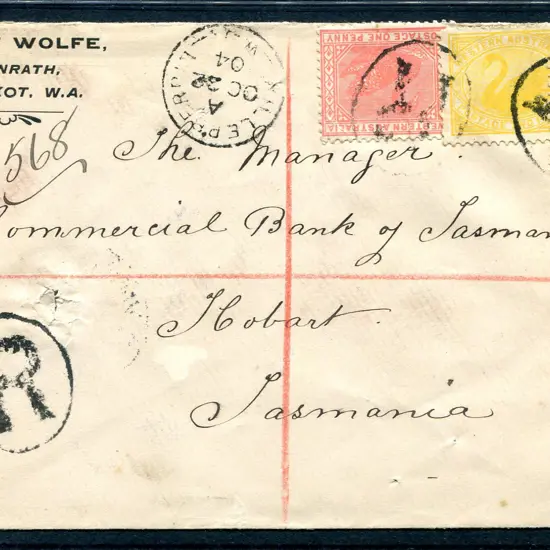 WOLFE,
NRATH,
KOT. W.A.
568
The Manager
Commercial Bank of Tasman
Hobart
Tasmania
POSTAGE ONE PENNY
WESTERN AUSTRALIA
A
OC 22
04
R